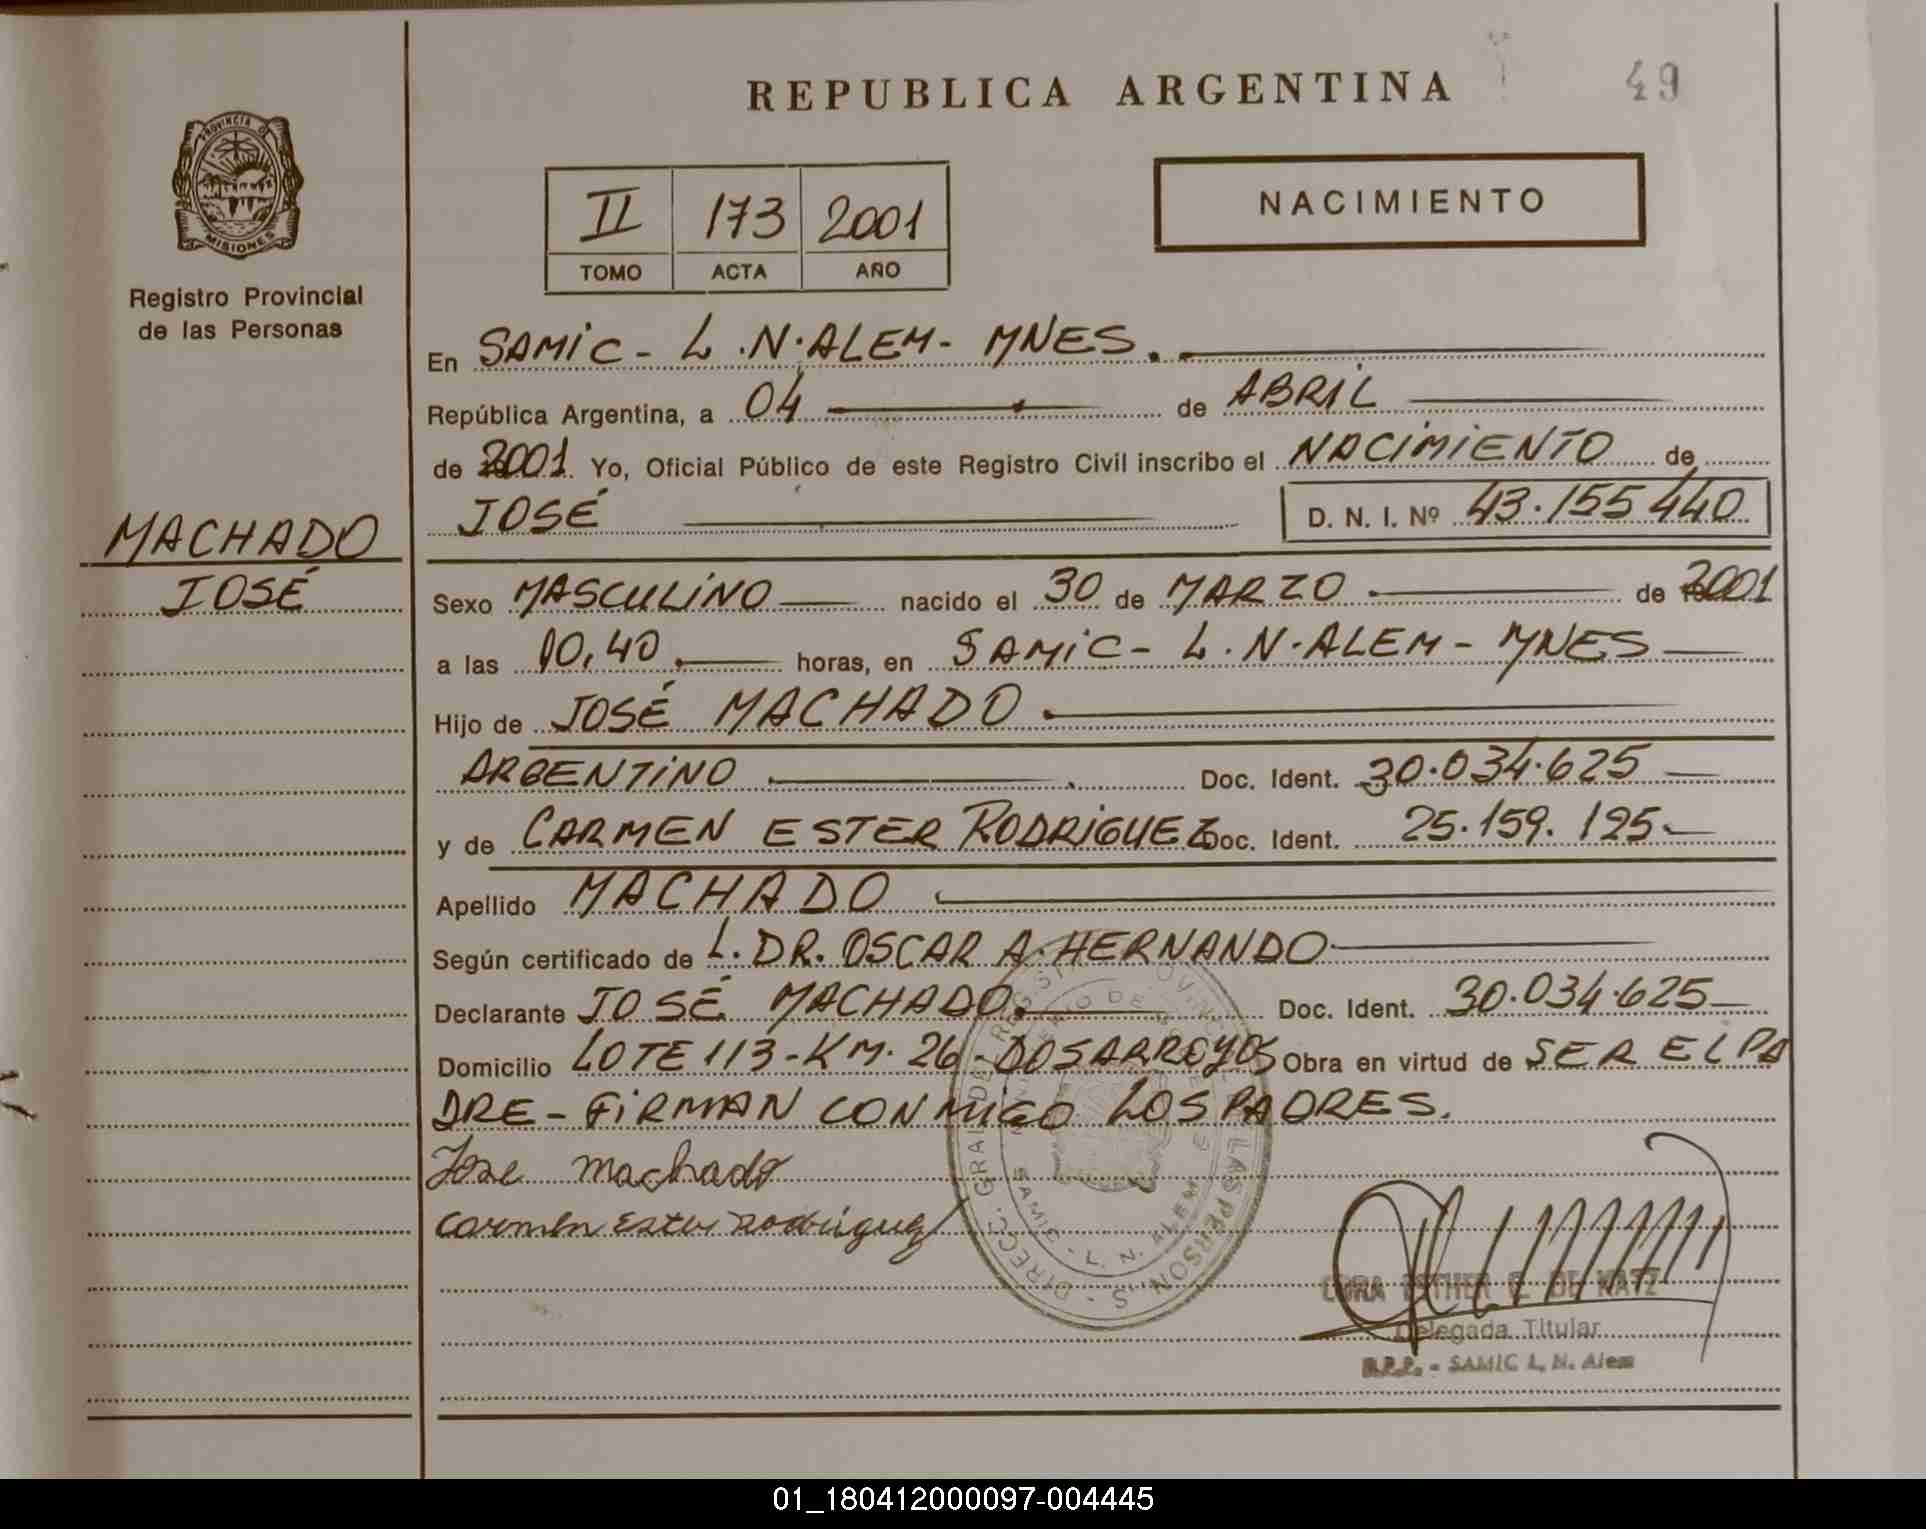 REPUBLICA ARGENTINA
49
PROVINCIA D
MISIONES
Registro Provincial
de las Personas
II 173 2001
TOMO ACTA AÑO
NACIMIENTO
En SAMIC - L.N.ALEM - MNES.
República Argentina, a 04 de ABRIL
de 2001. Yo, Oficial Público de este Registro Civil inscribo el NACIMIENTO de
JOSÉ D. N. I. Nº 43.155440
MACHADO
JOSÉ
Sexo MASCULINO nacido el 30 de MARZO de 2001
a las 10,40 horas, en SAMIC - L.N.ALEM - MNES
Hijo de JOSÉ MACHADO
ARGENTINO Doc. Ident. 30.034.625
y de CARMEN ESTER RODRIGUEZ Doc. Ident. 25.159.125
Apellido MACHADO
Según certificado de L. DR. OSCAR A. HERNANDO
Declarante JOSÉ MACHADO. Doc. Ident. 30.034.625
Domicilio LOTE 113 - KM. 26 - DOSARROYOS Obra en virtud de SER EL PA
DRE - FIRMAN CONMIGO LOS PADRES.
Jose Machado
Carmen Ester Rodriguez
DIRECC. GRAL. DEL REGISTRO PROVINCIAL DE LAS PERSONAS
SAMIC - L. N. ALEM
CORA ESTHER C. DE KATZ
Delegada Titular
R.P.P. - SAMIC L. N. Alem
01_180412000097-004445